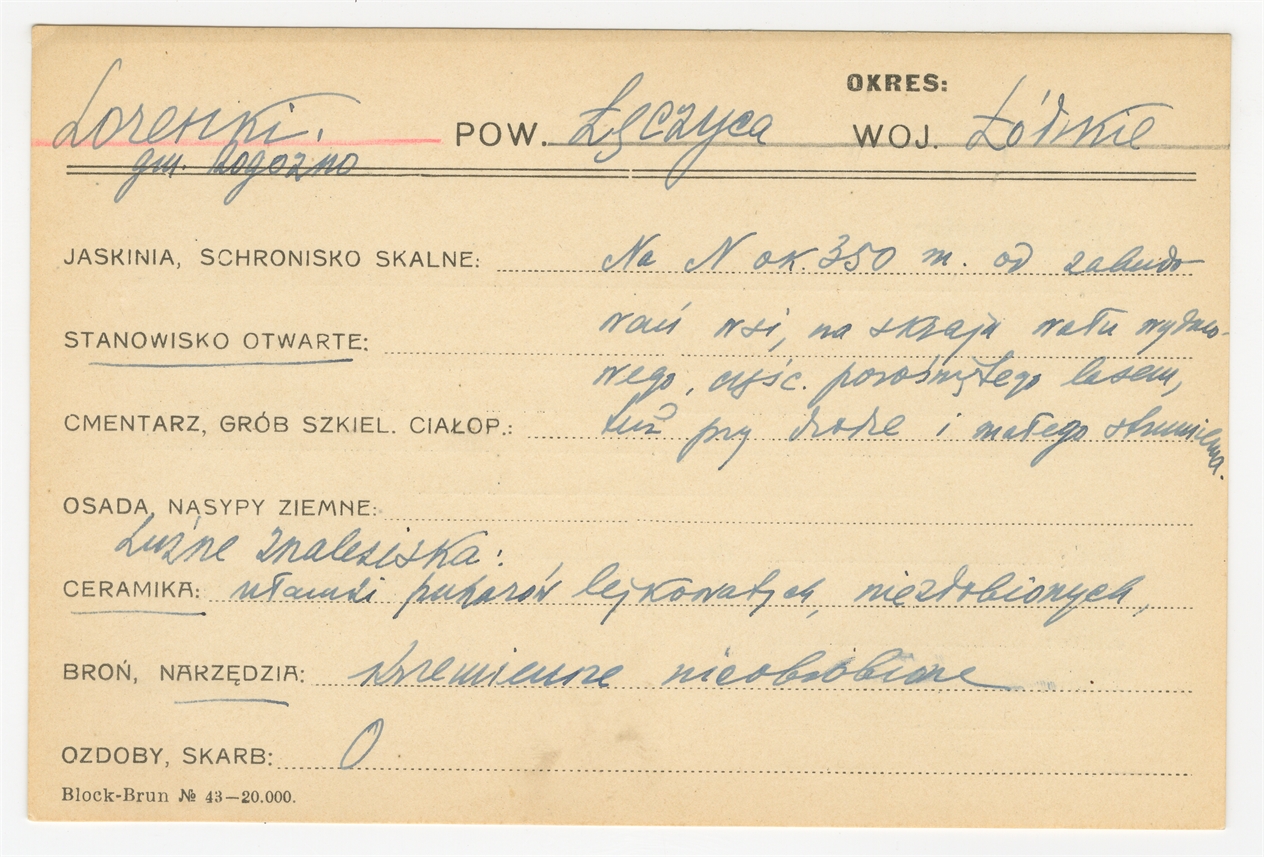 OKRES:
Lorenki. POW. Łęczyca WOJ. Łódzkie
gm. Rogozno
JASKINIA, SCHRONISKO SKALNE: Na N ok. 350 m. od zabudo
STANOWISKO OTWARTE: wań wsi, na skraju wału wydmo-
wego, część. porośniętego lasem,
CMENTARZ, GRÓB SZKIEL. CIAŁOP.: tuż przy drodze i małego strumienia.
OSADA, NASYPY ZIEMNE:
Luźne znaleziska:
CERAMIKA: ułamki pucharów lejkowatych, niezdobionych,
BROŃ, NARZĘDZIA: krzemienne nieobrobione
OZDOBY, SKARB: 0
Block-Brun № 43—20.000.